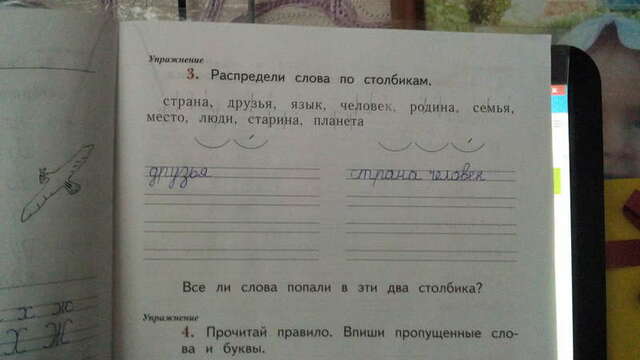 Упражнение
3. Распредели слова по столбикам.
страна, друзья, язык, человек, родина, семья,
место, люди, старина, планета
друзья страна человек
Все ли слова попали в эти два столбика?
х ж
Х Ж
Упражнение
4. Прочитай правило. Впиши пропущенные сло-
ва и буквы.